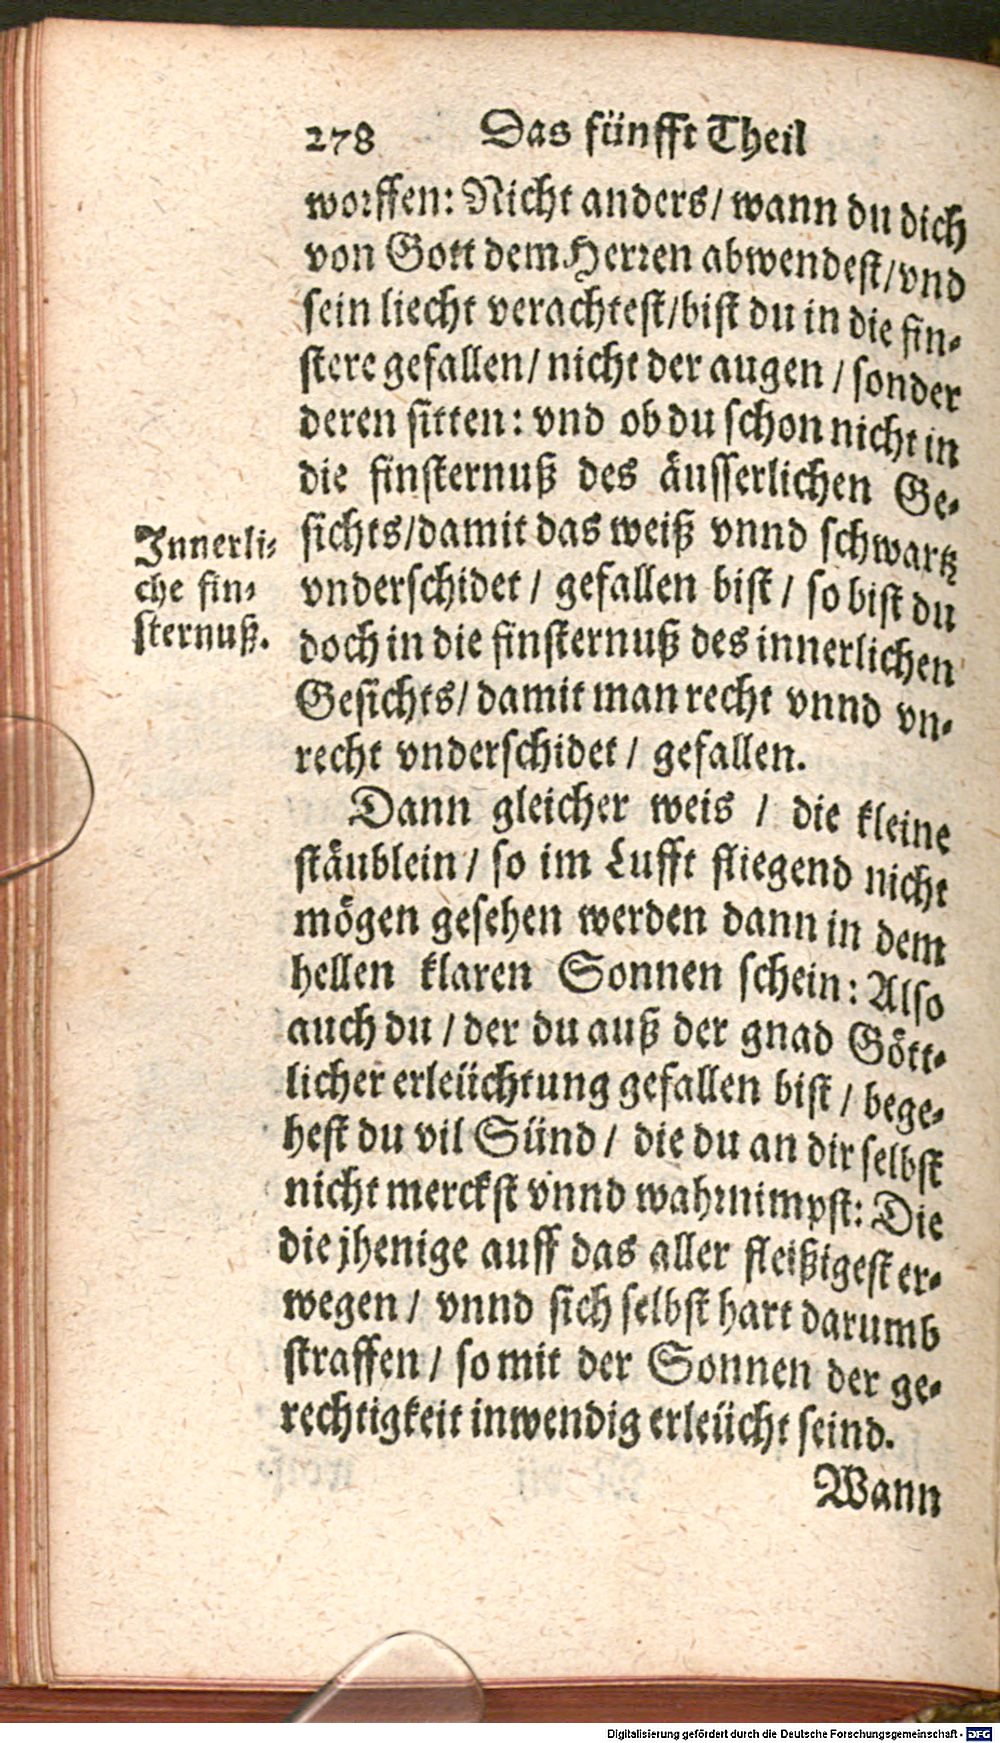 278 Das fünfft Theil
worffen: Nicht anders / wann du dich
von Gott dem Herren abwendest / vnd
sein liecht verachtest / bist du in die fin-
stere gefallen / nicht der augen / sonder
deren sitten: vnd ob du schon nicht in
die finsternuß des äusserlichen Ge-
sichts / damit das weiß vnnd schwartz
vnderschidet / gefallen bist / so bist du
doch in die finsternuß des innerlichen
Gesichts / damit man recht vnnd vn-
recht vnderschidet / gefallen.
Innerli-
che fin-
sternuß.
Dann gleicher weis / die kleine
stäublein / so im Lufft fliegend nicht
mögen gesehen werden dann in dem
hellen klaren Sonnen schein: Also
auch du / der du auß der gnad Gött-
licher erleüchtung gefallen bist / bege-
hest du vil Sünd / die du an dir selbst
nicht merckst vnnd wahrnimpst: Die
die jhenige auff das aller fleißigest er-
wegen / vnnd sich selbst hart darumb
straffen / so mit der Sonnen der ge-
rechtigkeit inwendig erleücht seind.
Wann
Digitalisierung gefördert durch die Deutsche Forschungsgemeinschaft - DFG